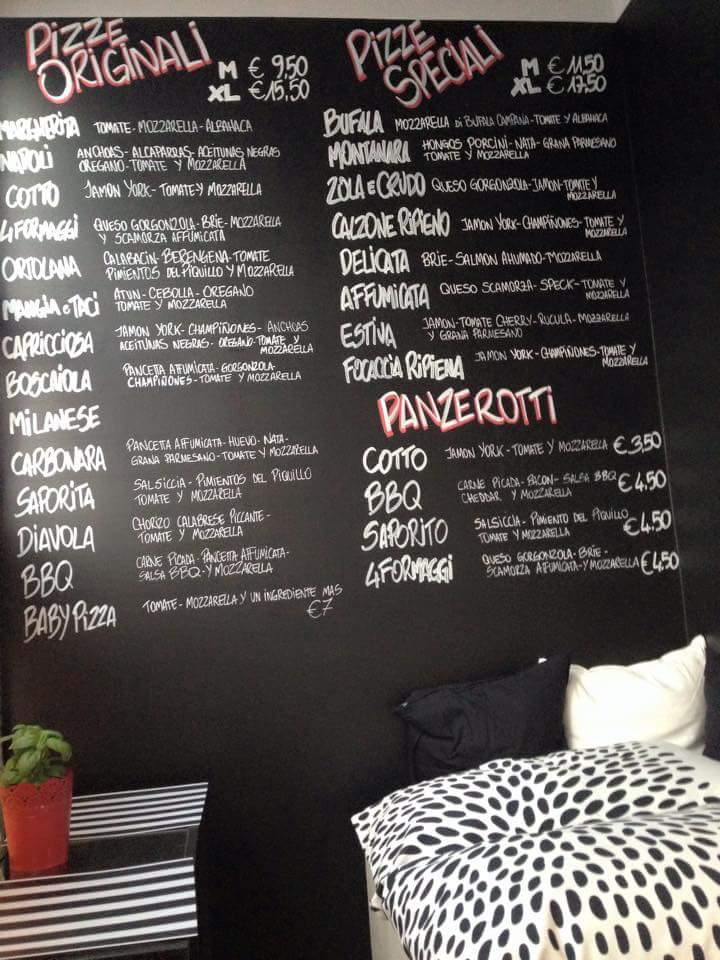 PIZZE
ORIGINALI
M € 9,50
XL € 15,50
MARGHERITA TOMATE-MOZZARELLA-ALBAHACA
NAPOLI ANCHOAS-ALCAPARRAS-ACEITUNAS NEGRAS
OREGANO-TOMATE Y MOZZARELLA
COTTO JAMON YORK-TOMATE Y MOZZARELLA
4 FORMAGGI QUESO GORGONZOLA-BRIE-MOZZARELLA
Y SCAMORZA AFFUMICATA
ORTOLANA CALABACIN-BERENGENA-TOMATE
PIMIENTOS DEL PIQUILLO Y MOZZARELLA
MANGIA e TACI ATUN-CEBOLLA-OREGANO
TOMATE Y MOZZARELLA
CAPRICCIOSA JAMON YORK-CHAMPIÑONES-ANCHOAS
ACEITUNAS NEGRAS-OREGANO-TOMATE Y
MOZZARELLA
BOSCAIOLA PANCETTA AFFUMICATA-GORGONZOLA-
CHAMPIÑONES-TOMATE Y MOZZARELLA
MILANESE
CARBONARA PANCETTA AFFUMICATA-HUEVO-NATA-
GRANA PARMESANO-TOMATE Y MOZZARELLA
SAPORITA SALSICCIA-PIMIENTOS DEL PIQUILLO
TOMATE Y MOZZARELLA
DIAVOLA CHORIZO CALABRESE PICCANTE-
TOMATE Y MOZZARELLA
BBQ CARNE PICADA-PANCETTA AFFUMICATA-
SALSA BBQ-Y MOZZARELLA
BABY PIZZA TOMATE-MOZZARELLA Y UN INGREDIENTE MAS
€7
PIZZE
SPECIALI
M € 11,50
XL € 17,50
BUFALA MOZZARELLA DI BUFALA CAMPANA-TOMATE Y ALBAHACA
MONTANARA HONGOS PORCINI-NATA-GRANA PARMESANO
TOMATE Y MOZZARELLA
ZOLA E CRUDO QUESO GORGONZOLA-JAMON-TOMATE Y
MOZZARELLA
CALZONE RIPIENO JAMON YORK-CHAMPIÑONES-TOMATE Y
MOZZARELLA
DELICATA BRIE-SALMON AHUMADO-MOZZARELLA
AFFUMICATA QUESO SCAMORZA-SPECK-TOMATE Y
MOZZARELLA
ESTIVA JAMON-TOMATE CHERRY-RUCULA-MOZZARELLA
Y GRANA PARMESANO
FOCACCIA RIPIENA JAMON YORK-CHAMPIÑONES-TOMATE Y
MOZZARELLA
PANZEROTTI
COTTO JAMON YORK-TOMATE Y MOZZARELLA €3,50
BBQ CARNE PICADA-BACON-SALSA BBQ €4,50
CHEDDAR Y MOZZARELLA
SAPORITO SALSICCIA-PIMIENTO DEL PIQUILLO €4,50
TOMATE Y MOZZARELLA
4 FORMAGGI QUESO GORGONZOLA-BRIE-
SCAMORZA AFFUMICATA-Y MOZZARELLA €4,50